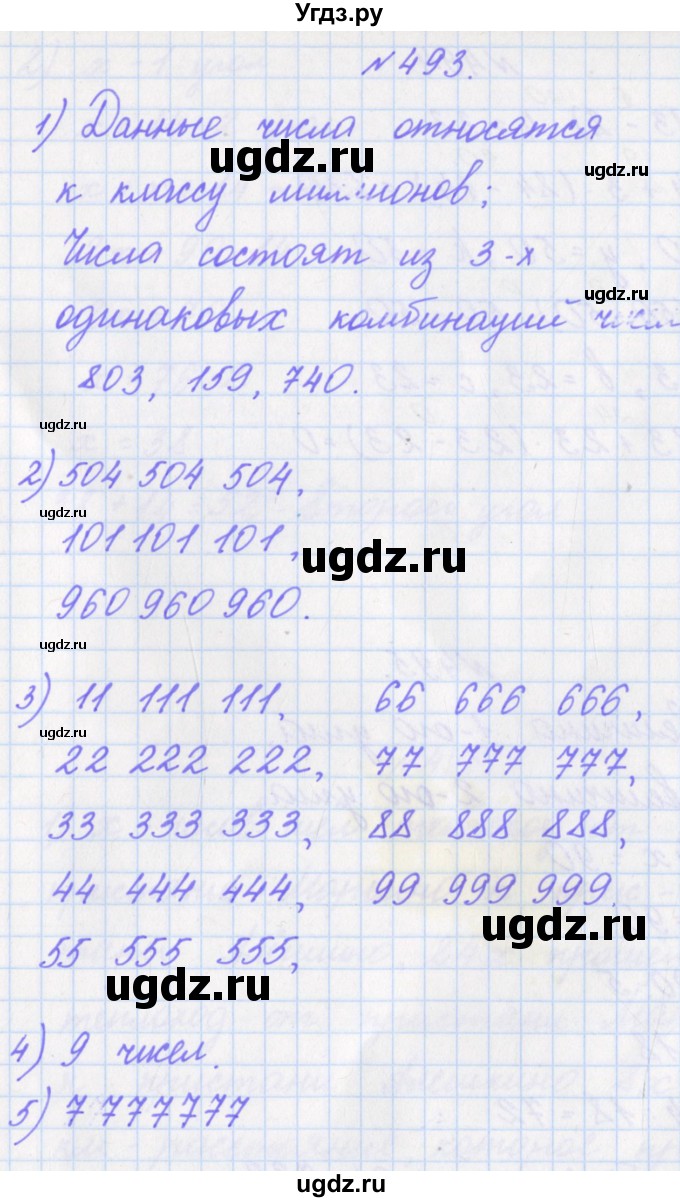 Угдз.ру
№493.
1) Данные числа относятся
ugdz.ru
ugdz.ru
к классу миллионов;
Числа состоят из 3-х
ugdz.ru
одинаковых комбинаций чисел
803, 159, 740.
ugdz.ru
2) 504 504 504,
ugdz.ru
101 101 101,
ugdz.ru
960 960 960.
ugdz.ru
3) 11 111 111, 66 666 666,
ugdz.ru
22 222 222, 77 777 777,
33 333 333, 88 888 888,
44 444 444, 99 999 999.
ugdz.ru
55 555 555,
ugdz.ru
4) 9 чисел.
5) 7 777777
ugdz.ru